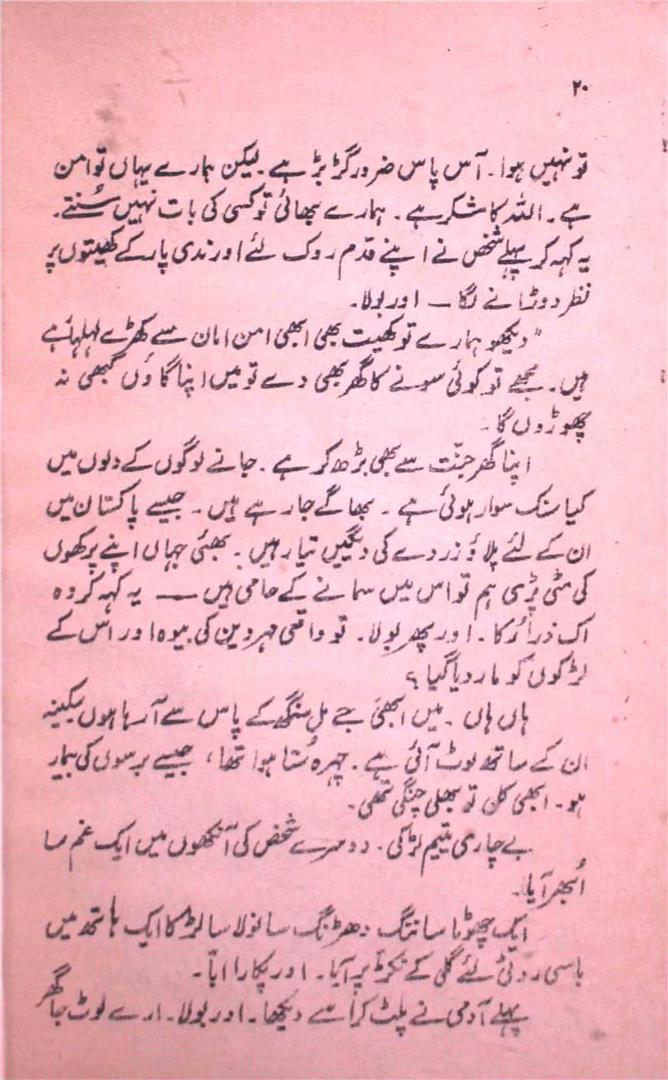 ۲۰
تو نہیں ہوا۔ آس پاس ضرور گڑبڑ ہے۔ لیکن ہمارے یہاں تو امن
ہے۔ اللہ کا شکر ہے۔ ہمارے بھائی تو کسی کی بات نہیں سُنتے۔
یہ کہہ کر پہلے شخص نے اپنے قدم روک لئے اور ندی پار کے کھیتوں پر
نظر دوڑانے لگا — اور بولا۔
"دیکھو ہمارے تو کھیت بھی ابھی امن امان سے کھڑے لہلہا رہے
ہیں۔ مجھے تو کوئی سونے کا گھر بھی دے تو میں اپنا گاؤں کبھی نہ
چھوڑوں گا۔
اپنا گھر جنّت سے بھی بڑھ کر ہے۔ جانے لوگوں کے دلوں میں
کیا سنک سوار ہوئی ہے۔ بھاگے جا رہے ہیں۔ جیسے پاکستان میں
ان کے لئے پلاؤ زردے کی دیگیں تیار ہیں۔ بھئی جہاں اپنے پرکھوں
کی مٹی پڑی ہم تو اس میں سمانے کے حامی ہیں — یہ کہہ کر وہ
اک ذرا رُکا۔ اور پھر بولا۔ تو واقعی مہر دین کی بیوہ اور اس کے
لڑکوں کو مار دیا گیا؟
ہاں ہاں۔ میں ابھی جے مل سنگھ کے پاس سے آ رہا ہوں سکینہ
ان کے ساتھ لوٹ آئی ہے۔ چہرہ سُتا ہوا تھا، جیسے برسوں کی بیمار
ہو۔ ابھی کل تو بھلی چنگی تھی۔
بے چاری یتیم لڑکی۔ دوسرے شخص کی آنکھوں میں ایک غم سا
اُبھر آیا۔
ایک چھوٹا سا ننگ دھڑنگ سانولا سا لڑکا ایک ہاتھ میں
باسی روٹی لئے گلی کے نکڑ پر آیا۔ اور پکارا ابّا۔
پہلے آدمی نے پلٹ کر اُسے دیکھا۔ اور بولا۔ ارے لوٹ جا گھر